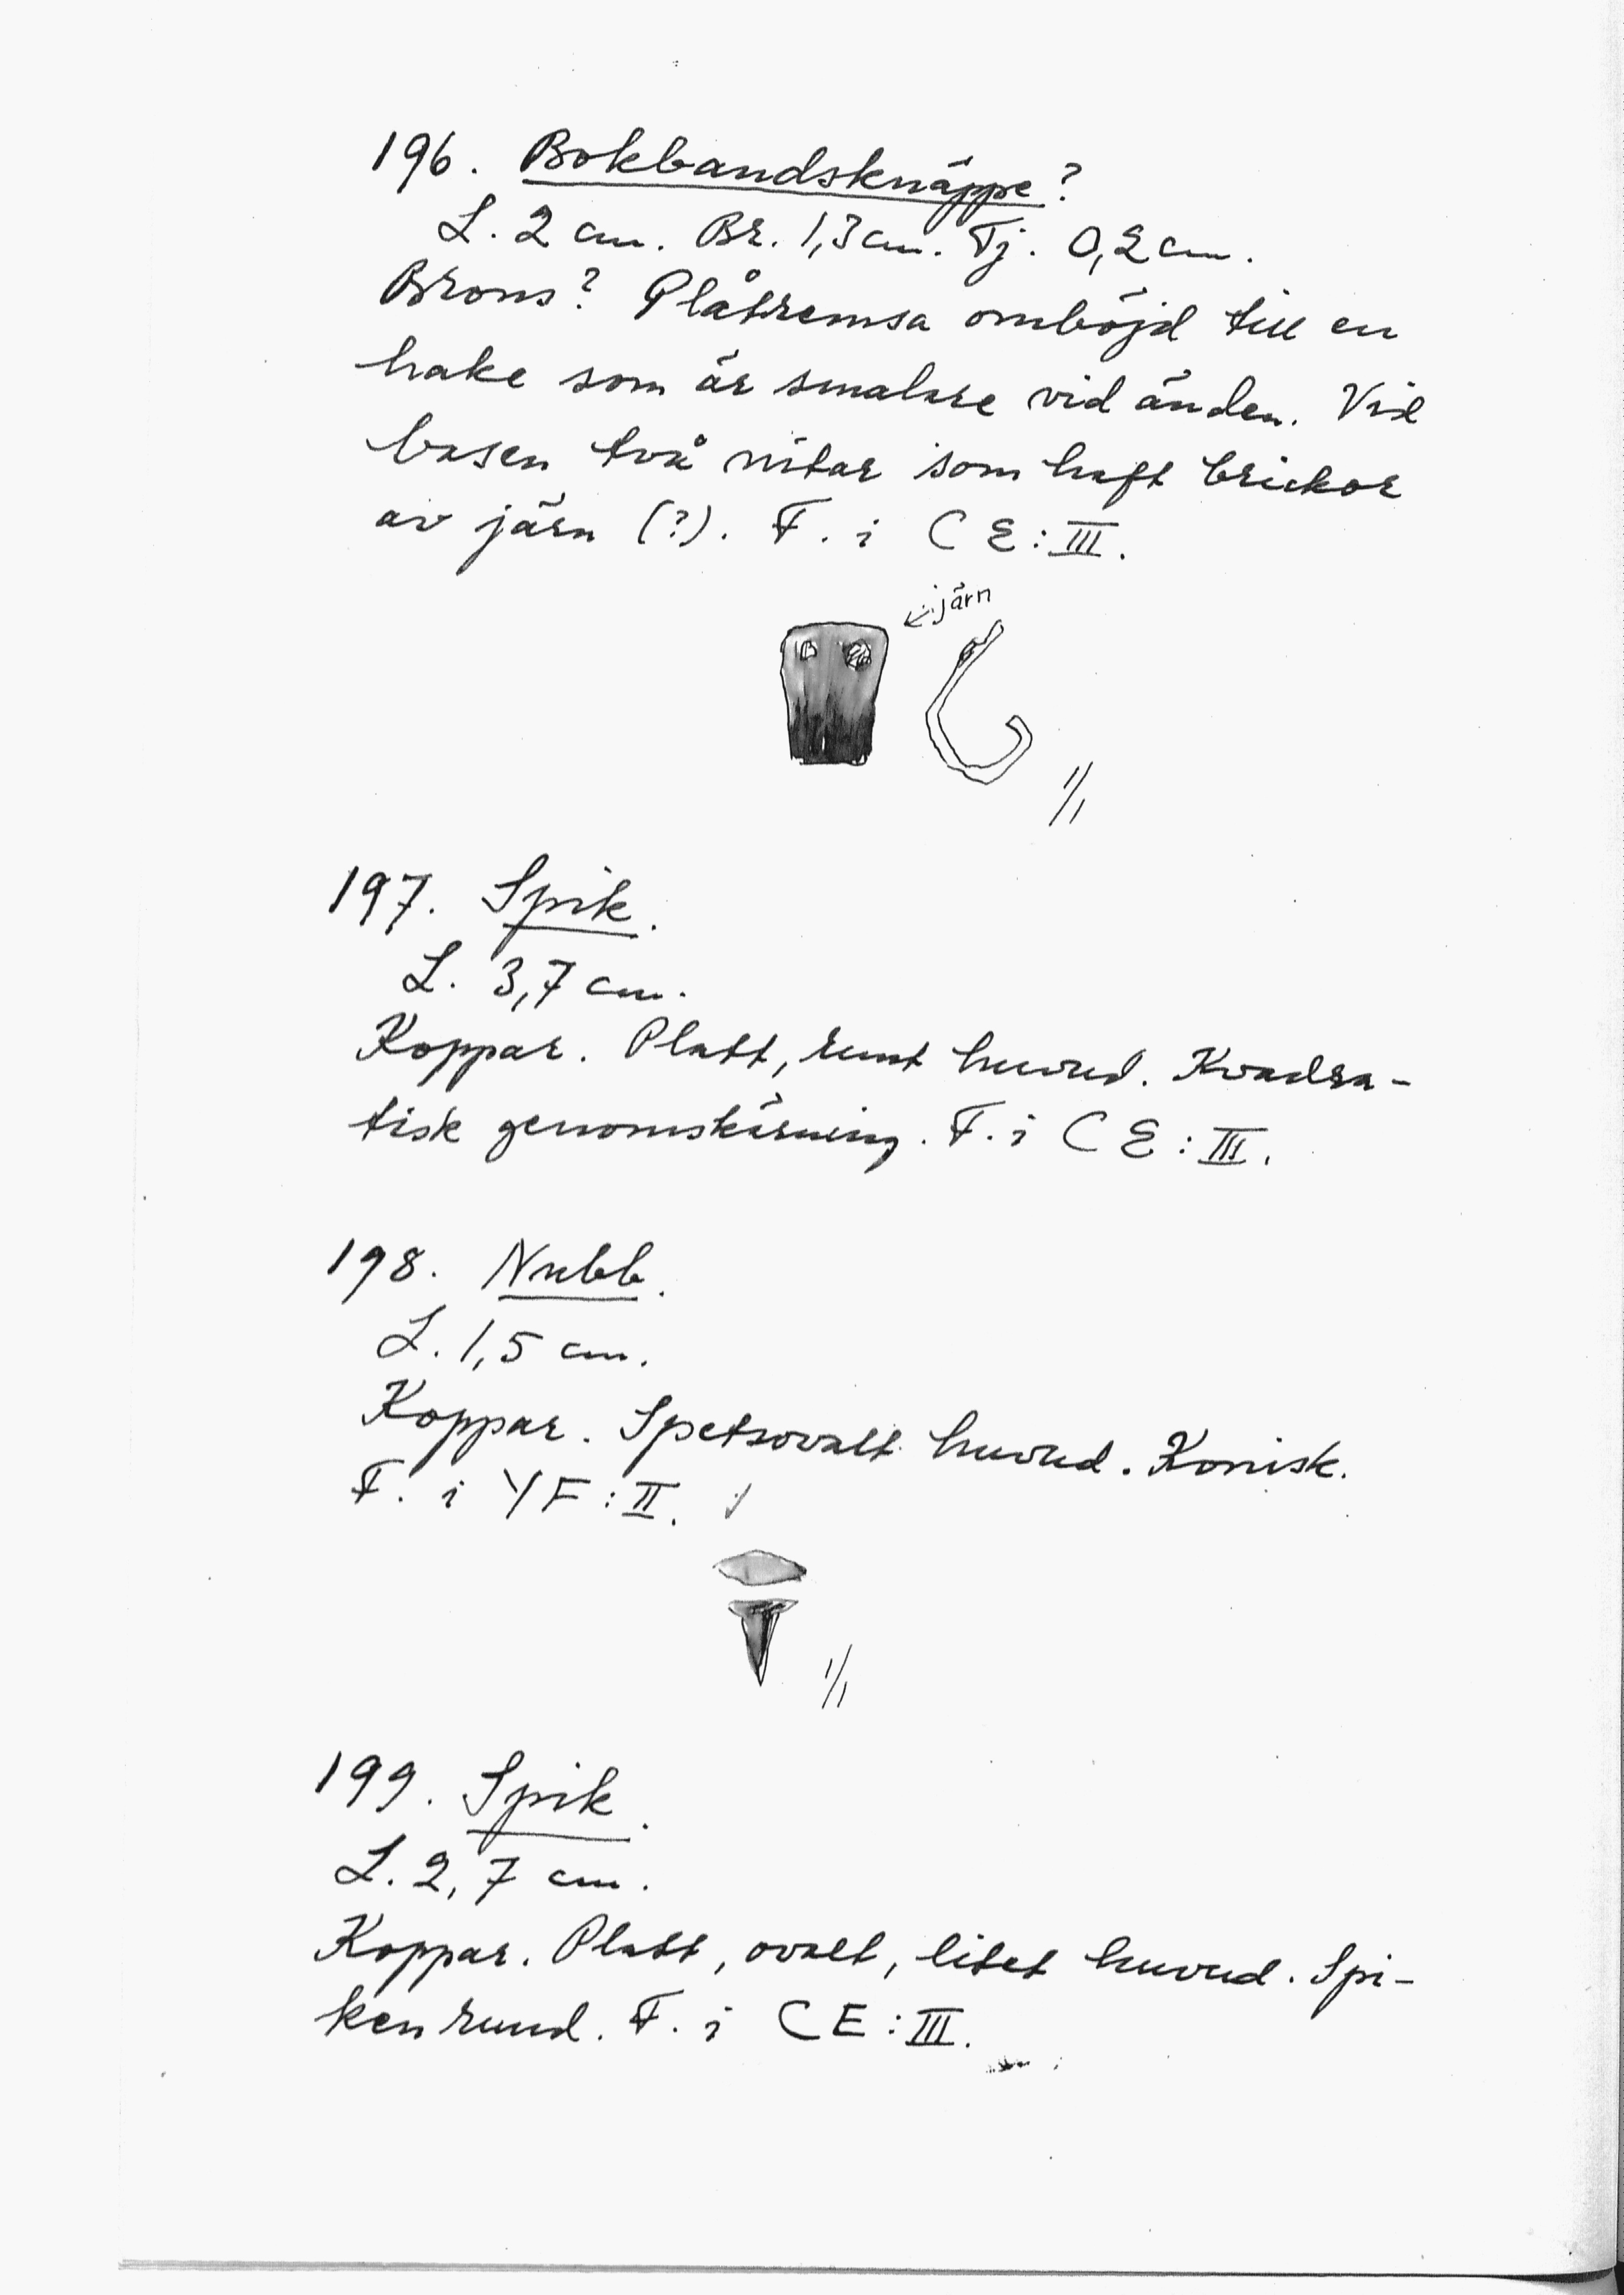 196. Bokbandsknäppe?
L. 2 cm. Br. 1,3 cm. Tj. 0,2 cm.
Brons? Plåtremsa omböjd till en
hake som är smalare vid änden. Vid
basen två nitar som haft brickor
av järn (?). F. i CE:III.
järn
1/1
197. Spik.
L. 3,7 cm.
Koppar. Platt, runt huvud. Kvadra-
tisk genomskärning. F. i CE:III.
198. Nubb.
L. 1,5 cm.
Koppar. Spetsovalt huvud. Konisk.
F. i YF:II.
1/1
199. Spik.
L. 2,7 cm.
Koppar. Platt, ovalt, litet huvud. Spi-
ken rund. F. i CE:III.